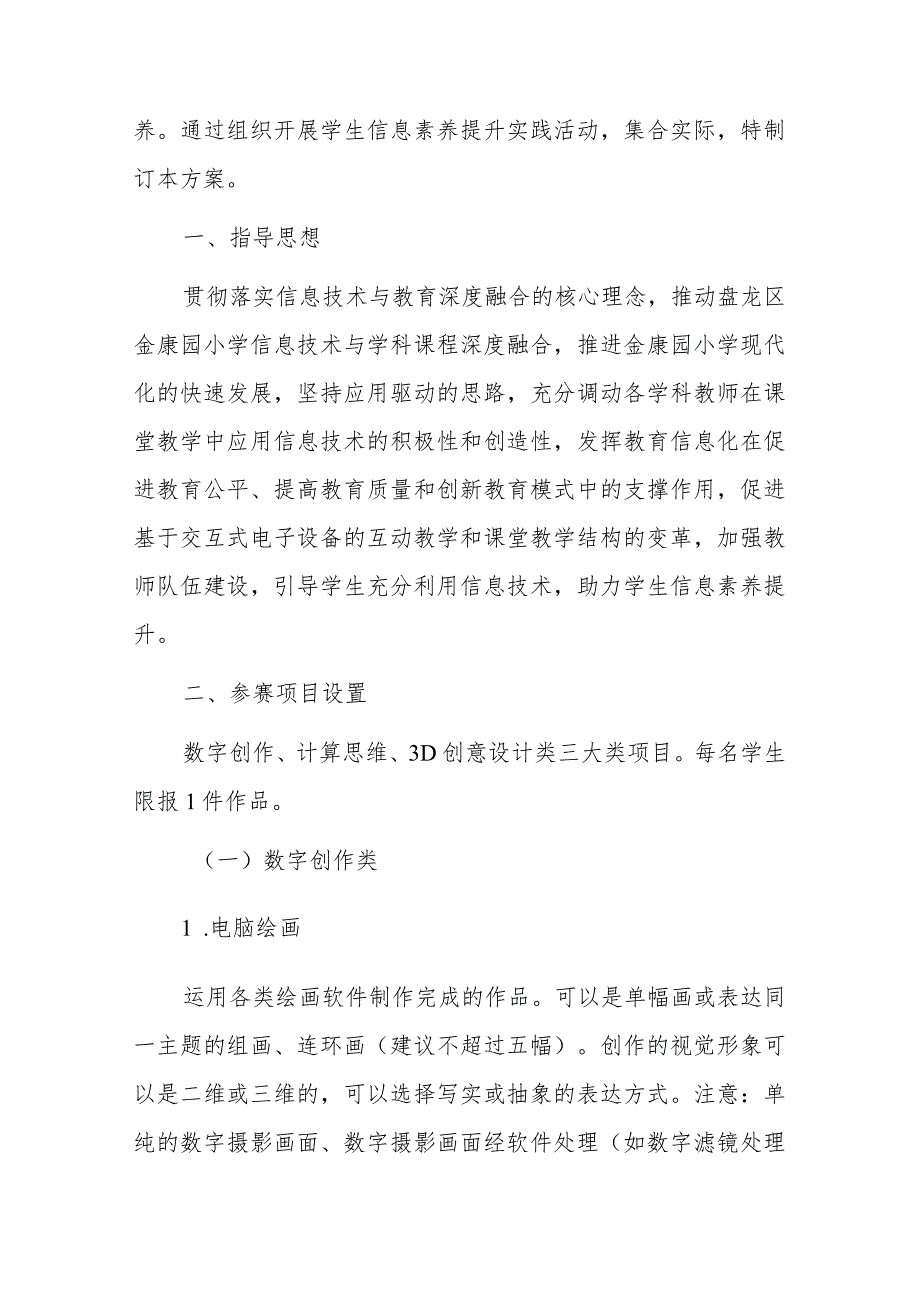 养。通过组织开展学生信息素养提升实践活动，集合实际，特制
订本方案。
一、指导思想
贯彻落实信息技术与教育深度融合的核心理念，推动盘龙区
金康园小学信息技术与学科课程深度融合，推进金康园小学现代
化的快速发展，坚持应用驱动的思路，充分调动各学科教师在课
堂教学中应用信息技术的积极性和创造性，发挥教育信息化在促
进教育公平、提高教育质量和创新教育模式中的支撑作用，促进
基于交互式电子设备的互动教学和课堂教学结构的变革，加强教
师队伍建设，引导学生充分利用信息技术，助力学生信息素养提
升。
二、参赛项目设置
数字创作、计算思维、3D 创意设计类三大类项目。每名学生
限报 1 件作品。
（一）数字创作类
1 .电脑绘画
运用各类绘画软件制作完成的作品。可以是单幅画或表达同
一主题的组画、连环画（建议不超过五幅）。创作的视觉形象可
以是二维或三维的，可以选择写实或抽象的表达方式。注意：单
纯的数字摄影画面、数字摄影画面经软件处理（如数字滤镜处理